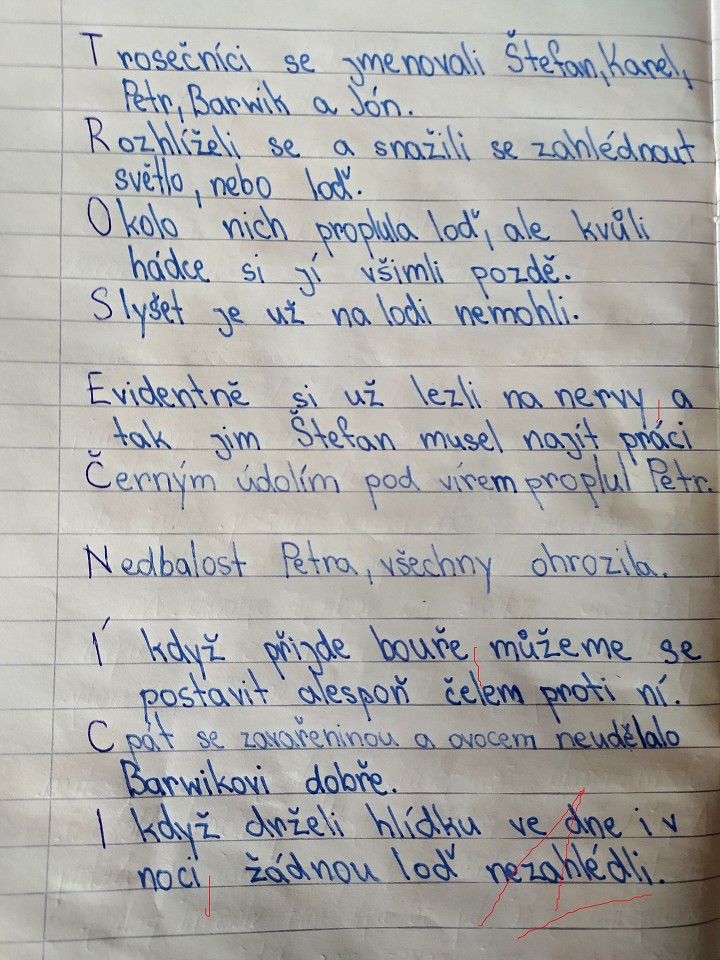 Trosečníci se jmenovali Štefan, Karel,
Petr, Barwik a Jón.
Rozhlíželi se a snažili se zahlédnout
světlo, nebo loď.
Okolo nich proplula loď, ale kvůli
hádce si jí všimli pozdě.
Slyšet je už na lodi nemohli.
Evidentně si už lezli na nervy, a
tak jim Štefan musel najít práci
Černým údolím pod vírem proplul Petr.
Nedbalost Petra, všechny ohrozila.
Í když přijde bouře, můžeme se
postavit alespoň čelem proti ní.
Cpát se zavařeninou a ovocem neudělalo
Barwikovi dobře.
I když drželi hlídku ve dne i v
noci, žádnou loď nezahlédli.